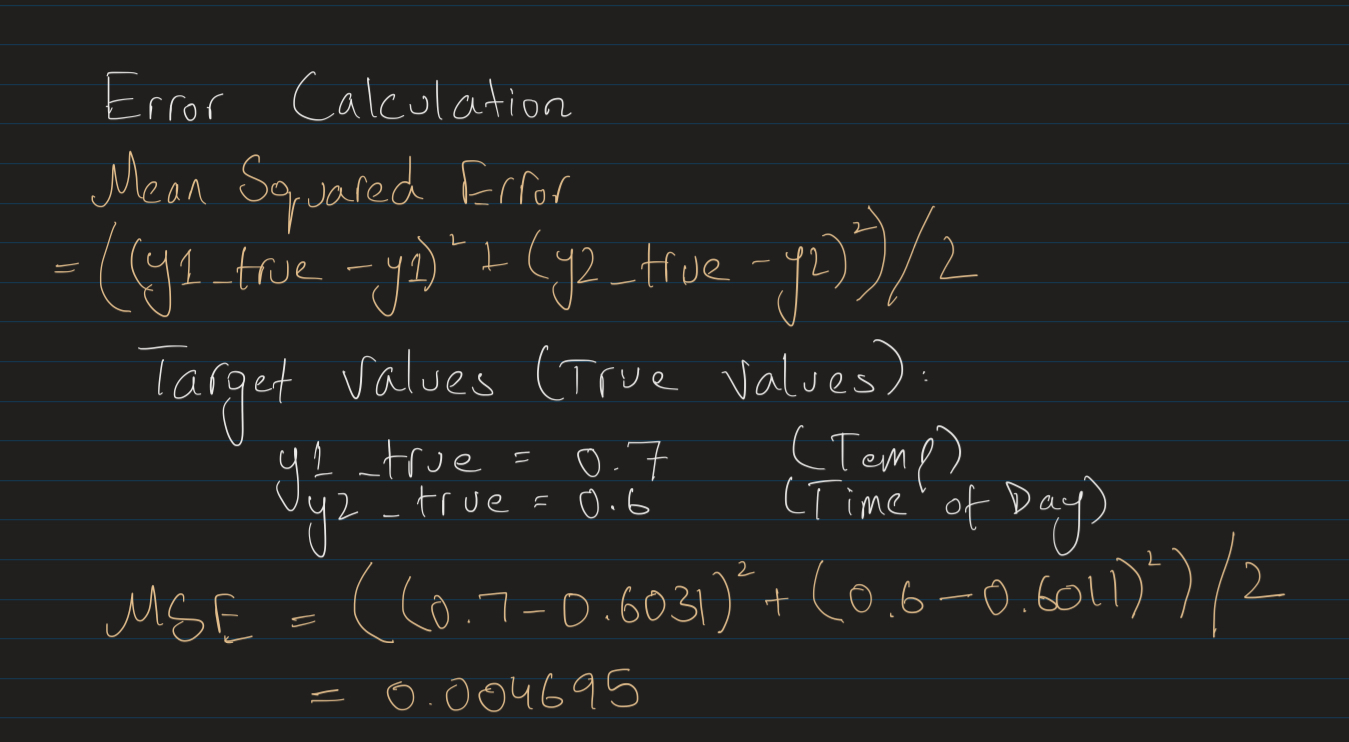 Error Calculation
Mean Squared Error
= ((y1_true - y1)² + (y2_true - y2)²)/2
Target Values (True Values):
y1_true = 0.7 (Temp)
y2_true = 0.6 (Time of Day)
MSE = ((0.7-0.6031)² + (0.6-0.6011)²)/2
= 0.004695